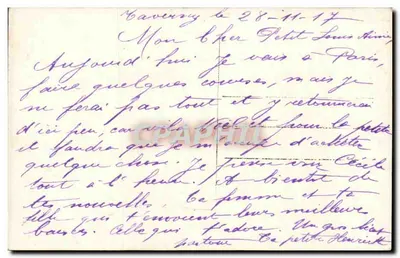 Taverny le 28-11-17
Mon Cher Petit Louis Aimé,
Aujourd'hui je vais à Paris,
faire quelques courses, mais je
ne ferai pas tout et y retournerai
d'ici peu, car Noël et pour la petite
il faudra que je d'acheter
quelque chose. Je viens Cécile
tout à l'heure. A bientôt de
tes nouvelles. Ta femme et ta
fille qui t'envoient leurs meilleurs
baisers. Celle qui t'adore. Un gros baiser
partout Ta petite Henriette